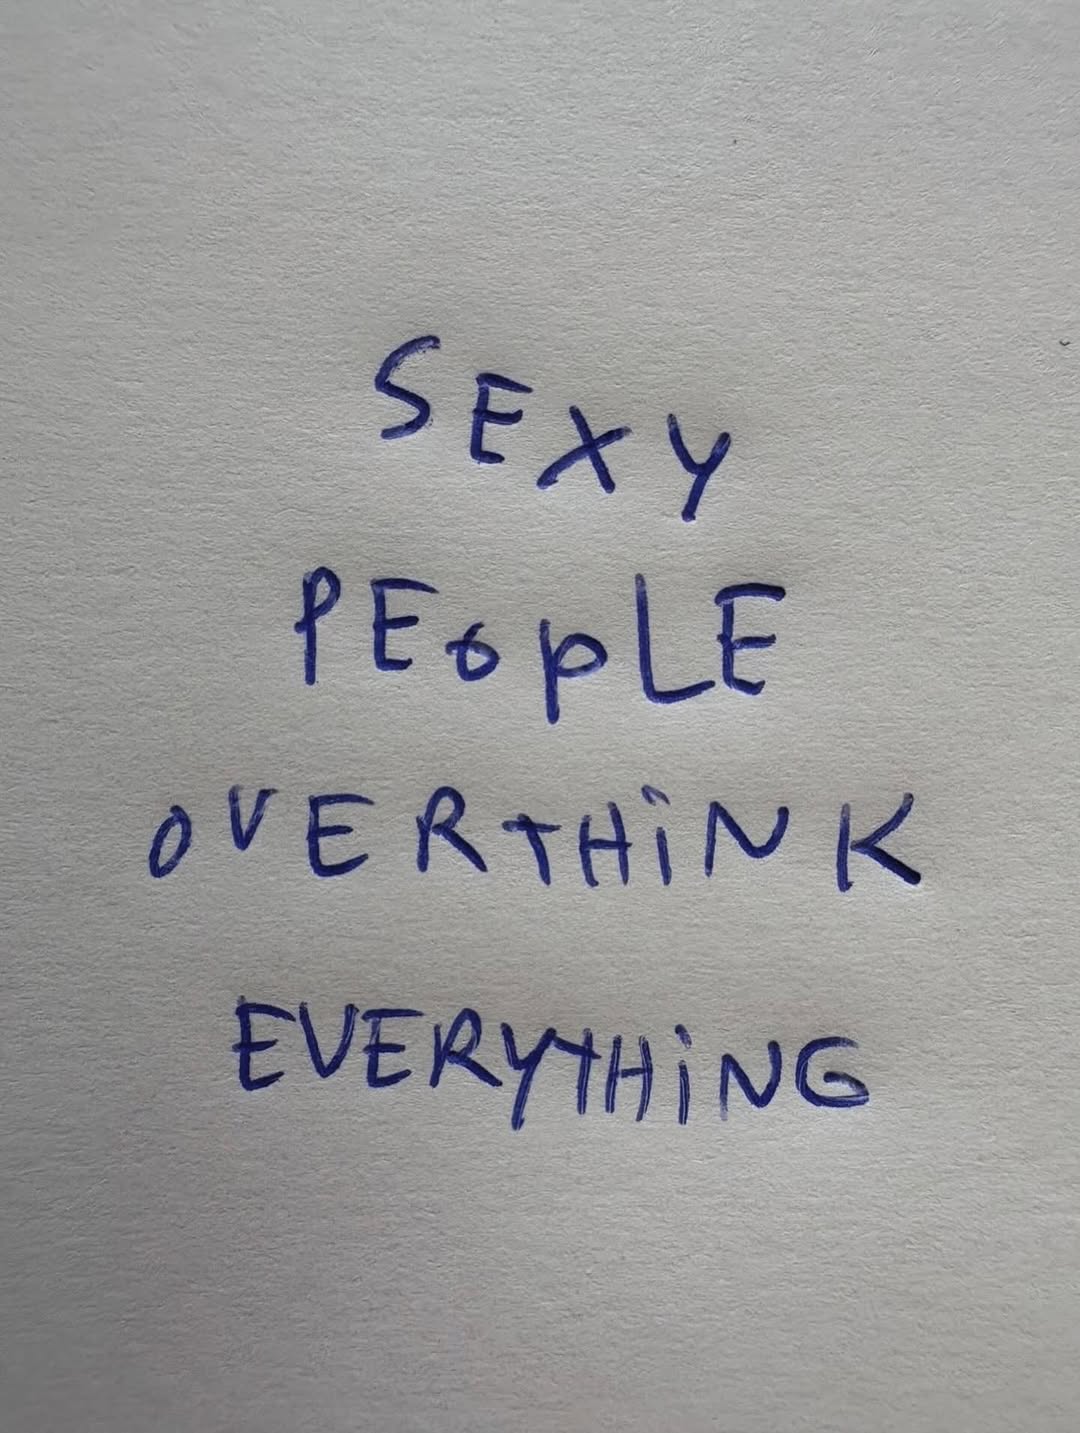 SEXY
PEOpLE
OVERTHiNK
EVERYTHiNG